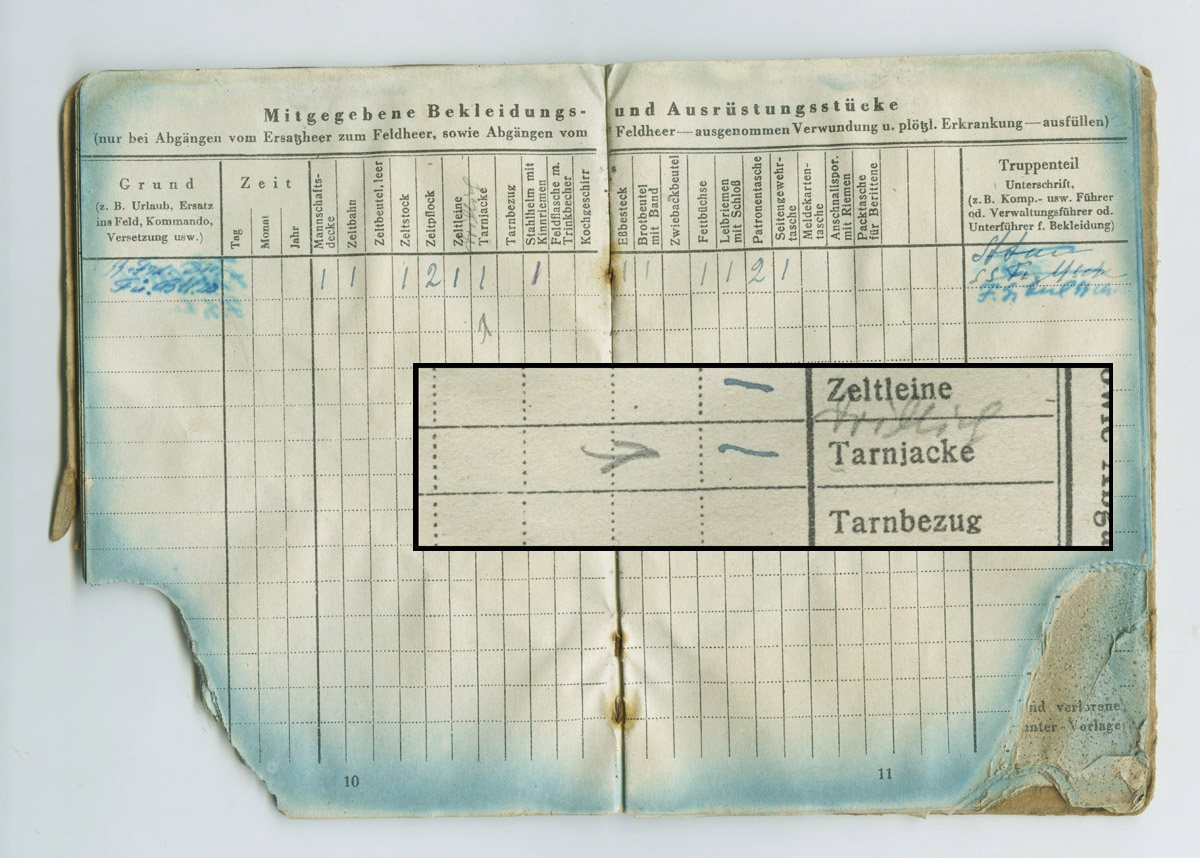 Mitgegebene Bekleidungs- und Ausrüstungsstücke
(nur bei Abgängen vom Ersatzheer zum Feldheer, sowie Abgängen vom Feldheer—ausgenommen Verwundung u. plötzl. Erkrankung—ausfüllen)
Grund
(z. B. Urlaub, Ersatz
ins Feld, Kommando,
Versetzung usw.)
Zeit
Tag
Monat
Jahr
Mannschafts-
decke
Zeltbahn
Zeltbeutel, leer
Zeltstock
Zeltpflock
Zeltleine
Tarnjacke
Tarnbezug
Stahlhelm mit
Kinnriemen
Feldflasche m.
Trinkbecher
Kochgeschirr
Eßbesteck
Brotbeutel
mit Band
Zwiebackbeutel
Fettbüchse
Leibriemen
mit Schloß
Patronentasche
Seitengewehr-
tasche
Meldekarten-
tasche
Anschnallspor.
mit Riemen
Packtasche
für Berittene
Truppenteil
Unterschrift,
(z. B. Komp.- usw. Führer
od. Verwaltungsführer od.
Unterführer f. Bekleidung)
1 1 1 2 1 1 1 1 1 1 1 2 1
Zeltleine
Tarnjacke
Tarnbezug
nd verlorene
nter Vorlage
10
11